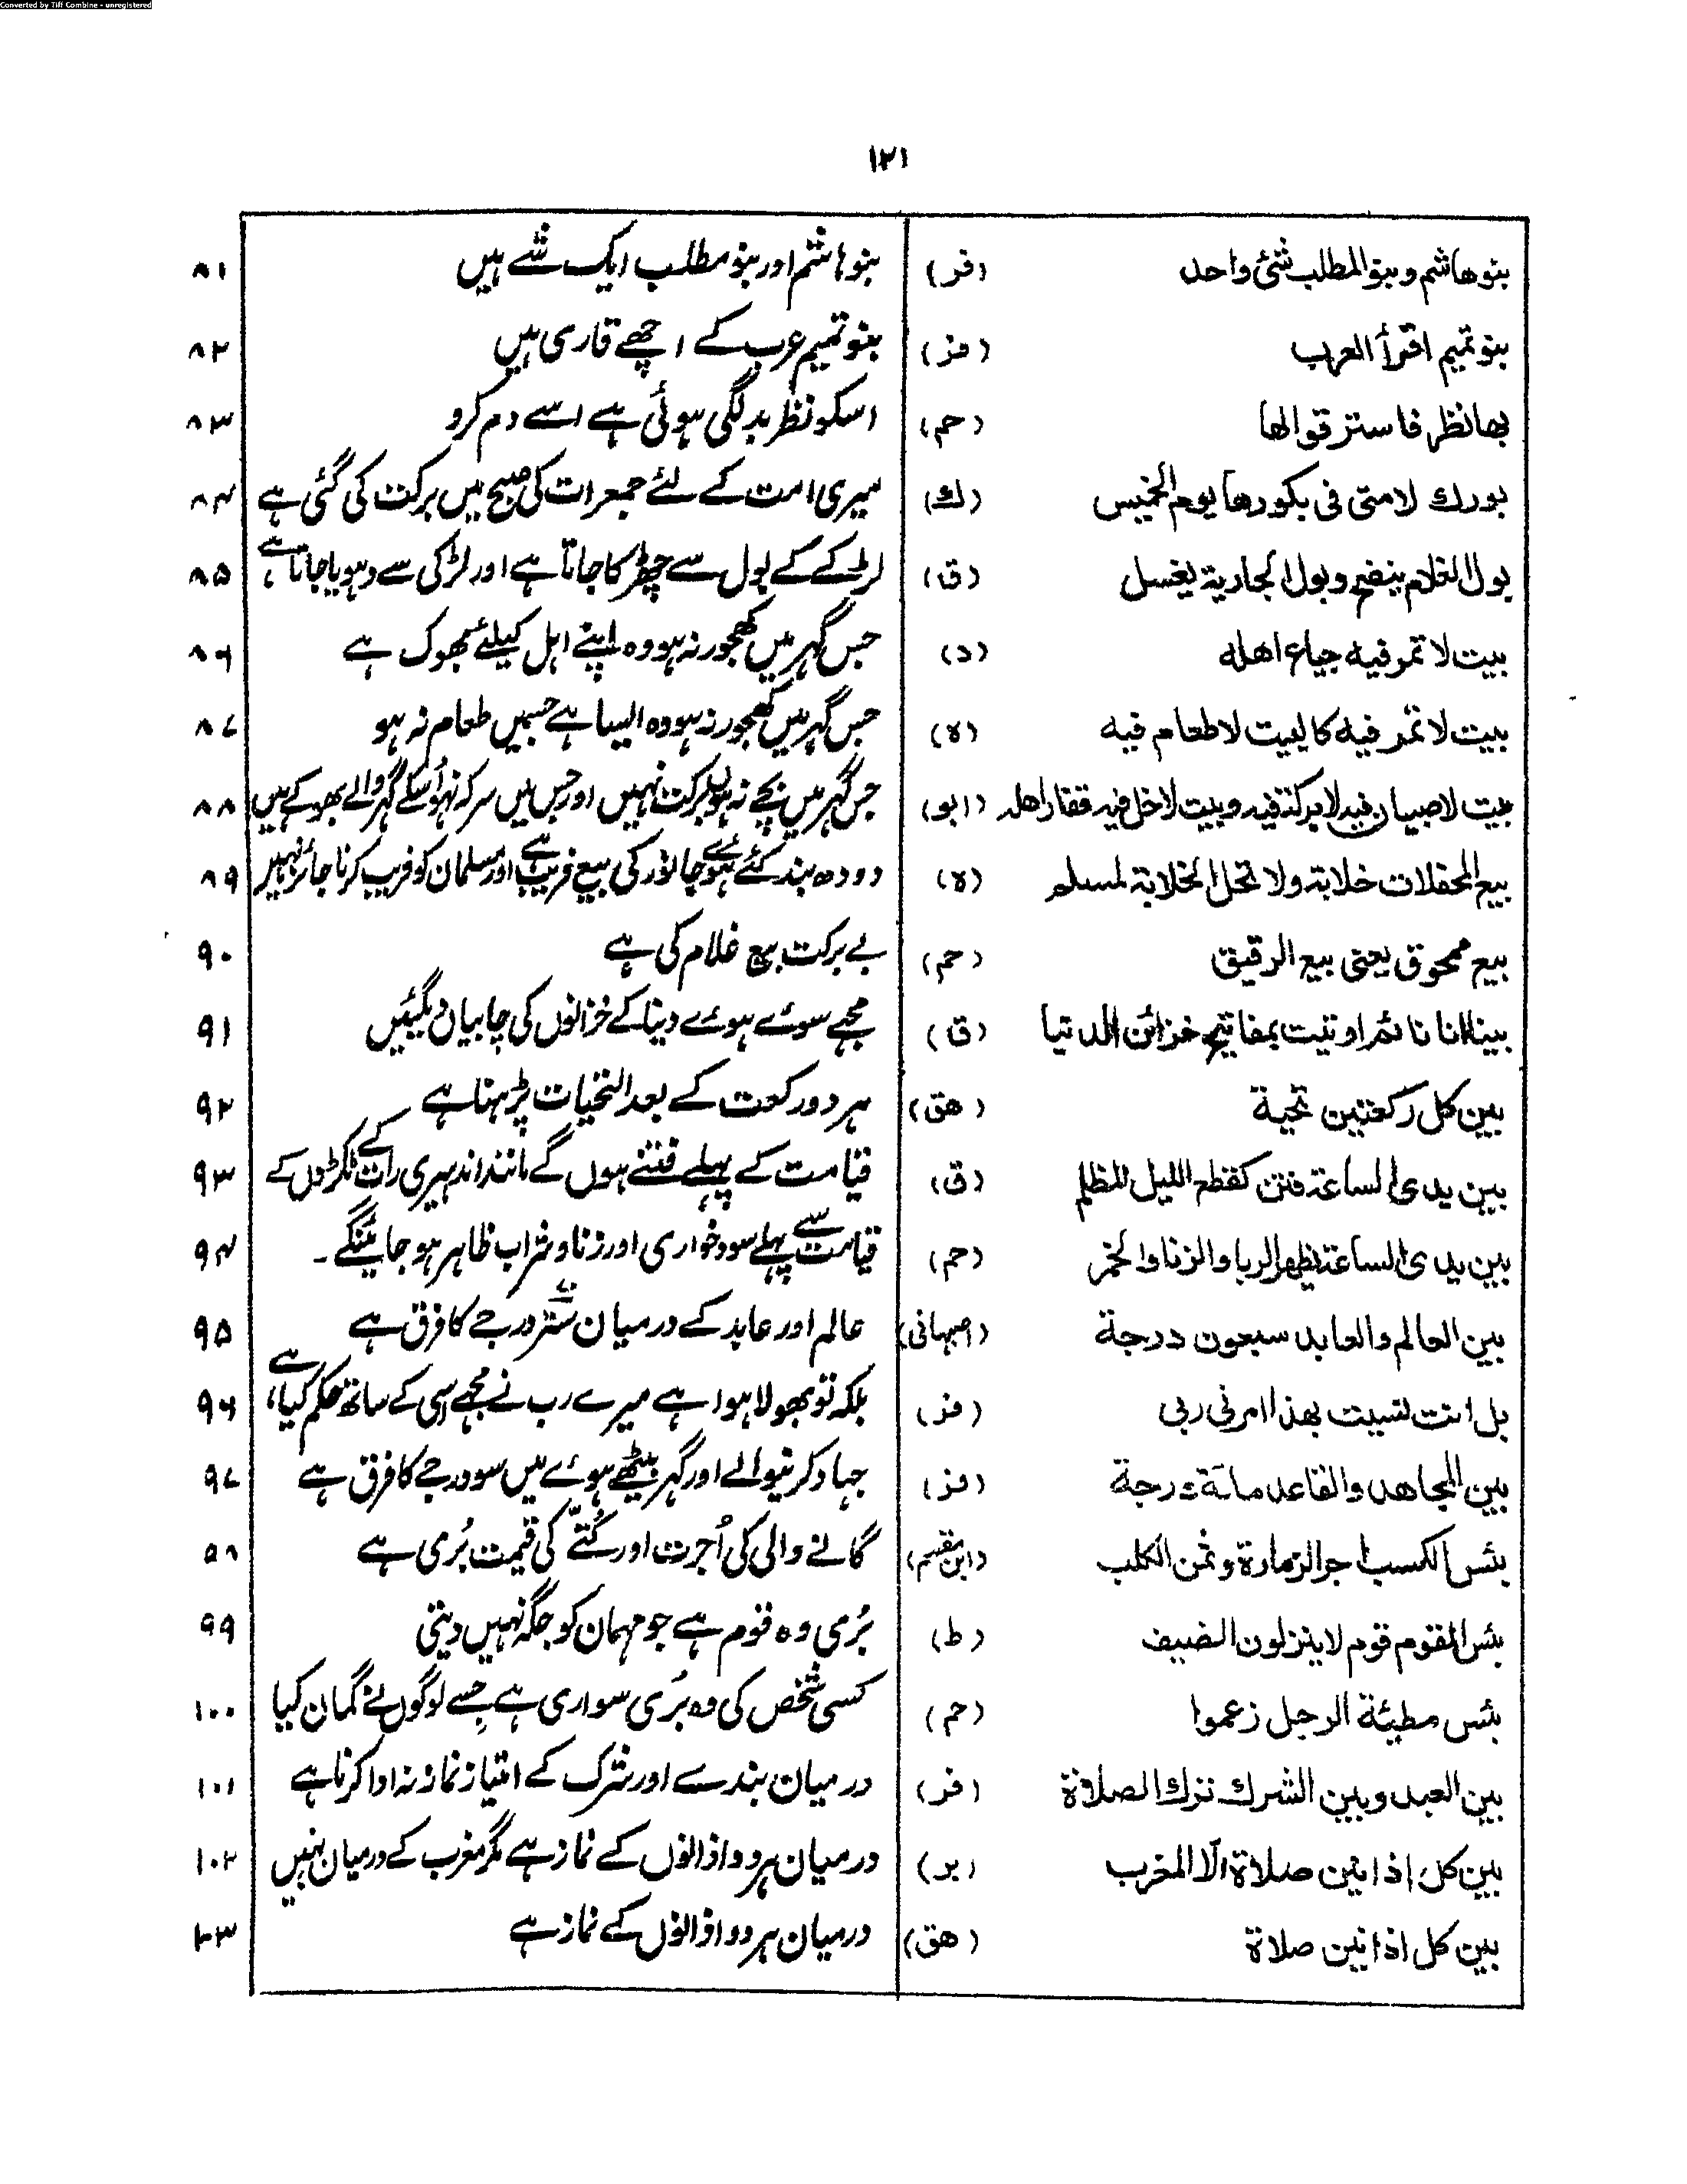 Converted by Tiff Combine - unregistered
۱۲۱
بنوهاشم وبنو المطلب شئ واحد (فر) بنو ہاشم اور بنو مطلب ایک شے ہیں ۸۱
بنو تميم اقرأ العرب (فز) بنو تمیم عرب کے اچھے قاری ہیں ۸۲
بها نظر فاسترقوا لها (حم) اسکو نظر بد لگی ہوئی ہے اسے دم کرو ۸۳
بورك لامتى فى بكورها يوم الخميس (ك) میری امت کے لئے جمعرات کی صبح میں برکت کی گئی ہے ۸۴
بول الغلام ينضح وبول الجارية يغسل (ق) لڑکے کے بول سے چھڑکا جاتا ہے اور لڑکی سے دہویا جاتا ہے ۸۵
بيت لا تمر فيه جياع اهله (د) جس گہر میں کھجور نہ ہو وہ اپنے اہل کیلئے بھوک ہے ۸۶
بيت لا تمر فيه كالبيت لا طعام فيه (ه) جس گہر میں کھجور نہ ہو وہ ایسا ہے جسمیں طعام نہ ہو ۸۷
بيت لا صبيان فيه لا بركة فيه وبيت لا خل فيه قفار اهله (ابو) جس گہر میں بچے نہ ہوں برکت نہیں اور جس میں سرکہ نہو اُسکے گہر والے بھوکے ہیں ۸۸
بيع المحفلات خلابة ولا تحل الخلابة لمسلم (ه) دودھ بند کئے ہوئے جانور کی بیع فریب ہے اور مسلمان کو فریب کرنا جائز نہیں ۸۹
بيع ممحوق يعنى بيع الرقيق (حم) بے برکت بیع غلام کی ہے ۹۰
بينا انا نائم اوتيت بمفاتيح خزائن الدنيا (ق) مجہے سوئے ہوئے دینا کے خزانوں کی چابیاں دیگئیں ۹۱
بين كل ركعتين تحية (هق) ہر دو رکعت کے بعد التحیات پڑہنا ہے ۹۲
بين يدى الساعة فتن كقطع الليل المظلم (ق) قیامت کے پہلے فتنے ہوں گے مانند اندہیری رات کے ٹکڑوں کے ۹۳
بين يدى الساعة يظهر الربا والزنا والخمر (حم) قیامت سے پہلے سود خواری اور زنا و شراب ظاہر ہو جائینگے۔ ۹۴
بين العالم والعابد سبعون درجة (اصبہانی) عالم اور عابد کے درمیان ستر ۷۰ درجے کا فرق ہے ۹۵
بل انت نسيت بهذا امرنى ربى (فز) بلکہ تو بھولا ہوا ہے میرے رب نے مجہے اسی کے ساتھ حکم کیا ہے ۹۶
بين المجاهد والقاعد مائة درجة (فز) جہاد کرنیوالے اور گہر بیٹھے ہوئے میں سو درجے کا فرق ہے ۹۷
بئس الكسب اجر الزمارة وثمن الكلب (ابن مقسم) گانے والی کی اُجرت اور کُتّے کی قیمت بُری ہے ۹۸
بئس القوم قوم لا ينزلون الضيف (ط) بُری وہ قوم ہے جو مہمان کو جگہ نہیں دیتی ۹۹
بئس مطيئة الرجل زعموا (حم) کسی شخص کی وہ بُری سواری ہے جسے لوگوں نے گمان کیا ۱۰۰
بين العبد وبين الشرك ترك الصلاة (فر) درمیان بندے اور شرک کے امتیاز نماز نہ ادا کرنا ہے ۱۰۱
بين كل اذانين صلاة الّا المغرب (بر) درمیان ہر دو اذانوں کے نماز ہے مگر مغرب کے درمیان نہیں ۱۰۲
بين كل اذانين صلاة (هق) درمیان ہر دو اذانوں کے نماز ہے ۱۰۳